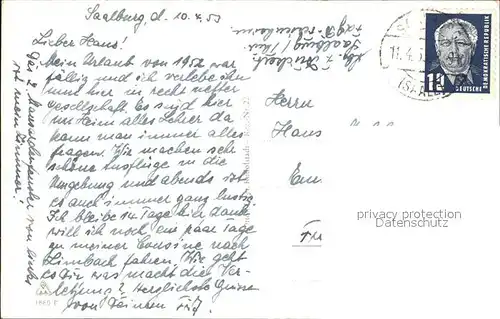 Saalburg, d. 10.4.53
Lieber Hans!
Mein Urlaub von 1952 war
fällig und ich verlebe ihn
nun hier in recht netter
Gesellschaft. Es sind hier
im Heim alles Lehrer da
kann man immer alles
fragen. Wir machen sehr
schöne Ausflüge in die
Umgebung und abends ist
es auch immer ganz lustig.
Ich bleibe 14 Tage hier dann
will ich noch ein paar Tage
zu meiner Cousine nach
Limbach fahren. Wie geht
es Dir was macht die Ver-
letzung? Herzlichste Grüsse
von Deinem
Das 2. von links
ist mein Zimmer!
Saalburg / Thür.
Herrn
Hans
DEUTSCHE
DEMOKRATISCHE REPUBLIK
12
11.4.5
(SAALE)
privacy protection
Datenschutz